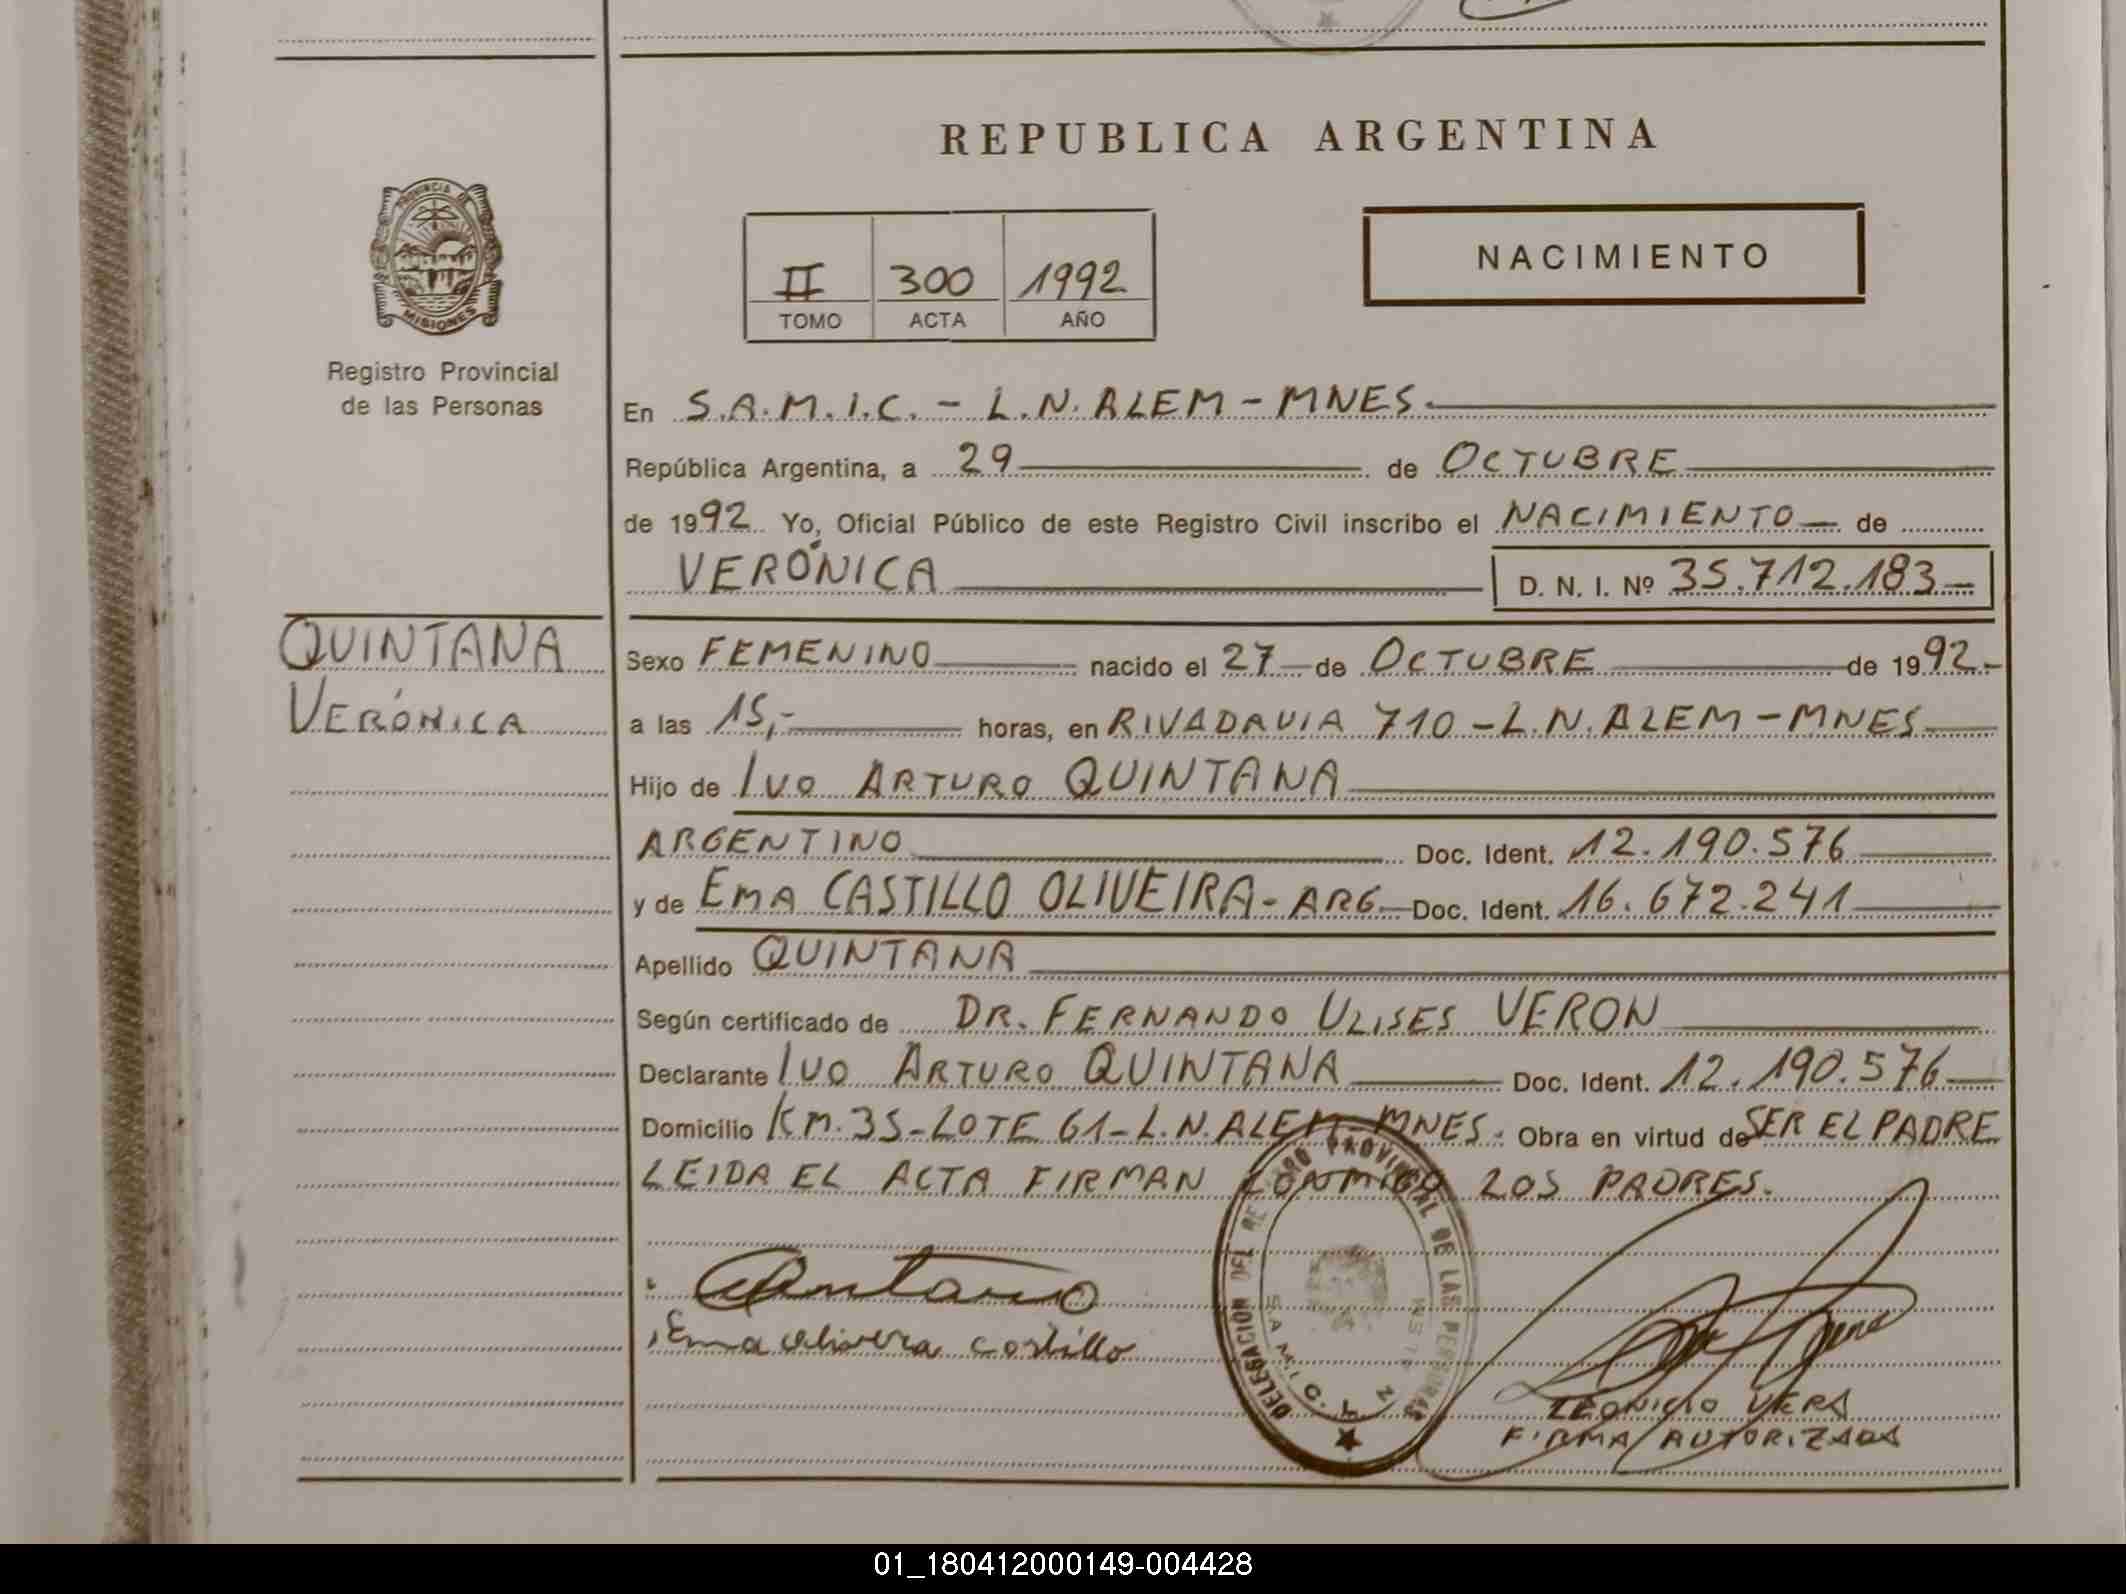 REPUBLICA ARGENTINA
PROVINCIA DE
MISIONES
Registro Provincial
de las Personas
II 300 1992
TOMO ACTA AÑO
NACIMIENTO
En S.A.M.I.C. - L.N. ALEM - MNES.
República Argentina, a 29 de OCTUBRE
de 1992 Yo, Oficial Público de este Registro Civil inscribo el NACIMIENTO de
VERÓNICA D. N. I. Nº 35.712.183
QUINTANA
VERÓNICA
Sexo FEMENINO nacido el 27 de OCTUBRE de 1992.-
a las 15,- horas, en RIVADAVIA 710 - L.N. ALEM - MNES
Hijo de IVO ARTURO QUINTANA
ARGENTINO Doc. Ident. 12.190.576
y de EMA CASTILLO OLIVEIRA - ARG Doc. Ident. 16.672.241
Apellido QUINTANA
Según certificado de DR. FERNANDO ULISES VERON
Declarante IVO ARTURO QUINTANA Doc. Ident. 12.190.576
Domicilio KM. 35 - LOTE 61 - L.N. ALEM - MNES. Obra en virtud de SER EL PADRE
LEIDA EL ACTA FIRMAN CONMIGO LOS PADRES.
Quintana
Ema Olivera Castillo
DELEGACION DEL REGISTRO PROVINCIAL DE LAS PERSONAS
S.A.M.I.C. L.N.
LEONICIO VERA
FIRMA AUTORIZADA
01_180412000149-004428